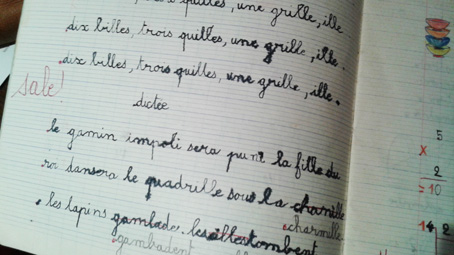 trois quilles, une grille, ille
dix billes, trois quilles, une grille, ille.
dix billes, trois quilles, une grille, ille.
sale!
dictée
le gamin impoli sera puni la fille du
roi dansera le quadrille sous la chamille
charmille
les lapins gambade. les tombent
gambadent
5
x
2
=10
14 2